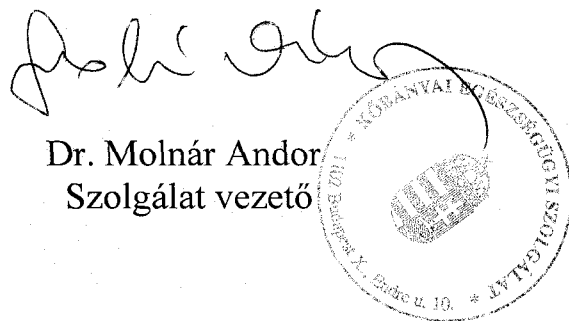 Dr. Molnár Andor
Szolgálat vezető
* KŐBÁNYAI EGÉSZSÉGÜGYI SZOLGÁLAT *
1102 Budapest X., Endre u. 10.